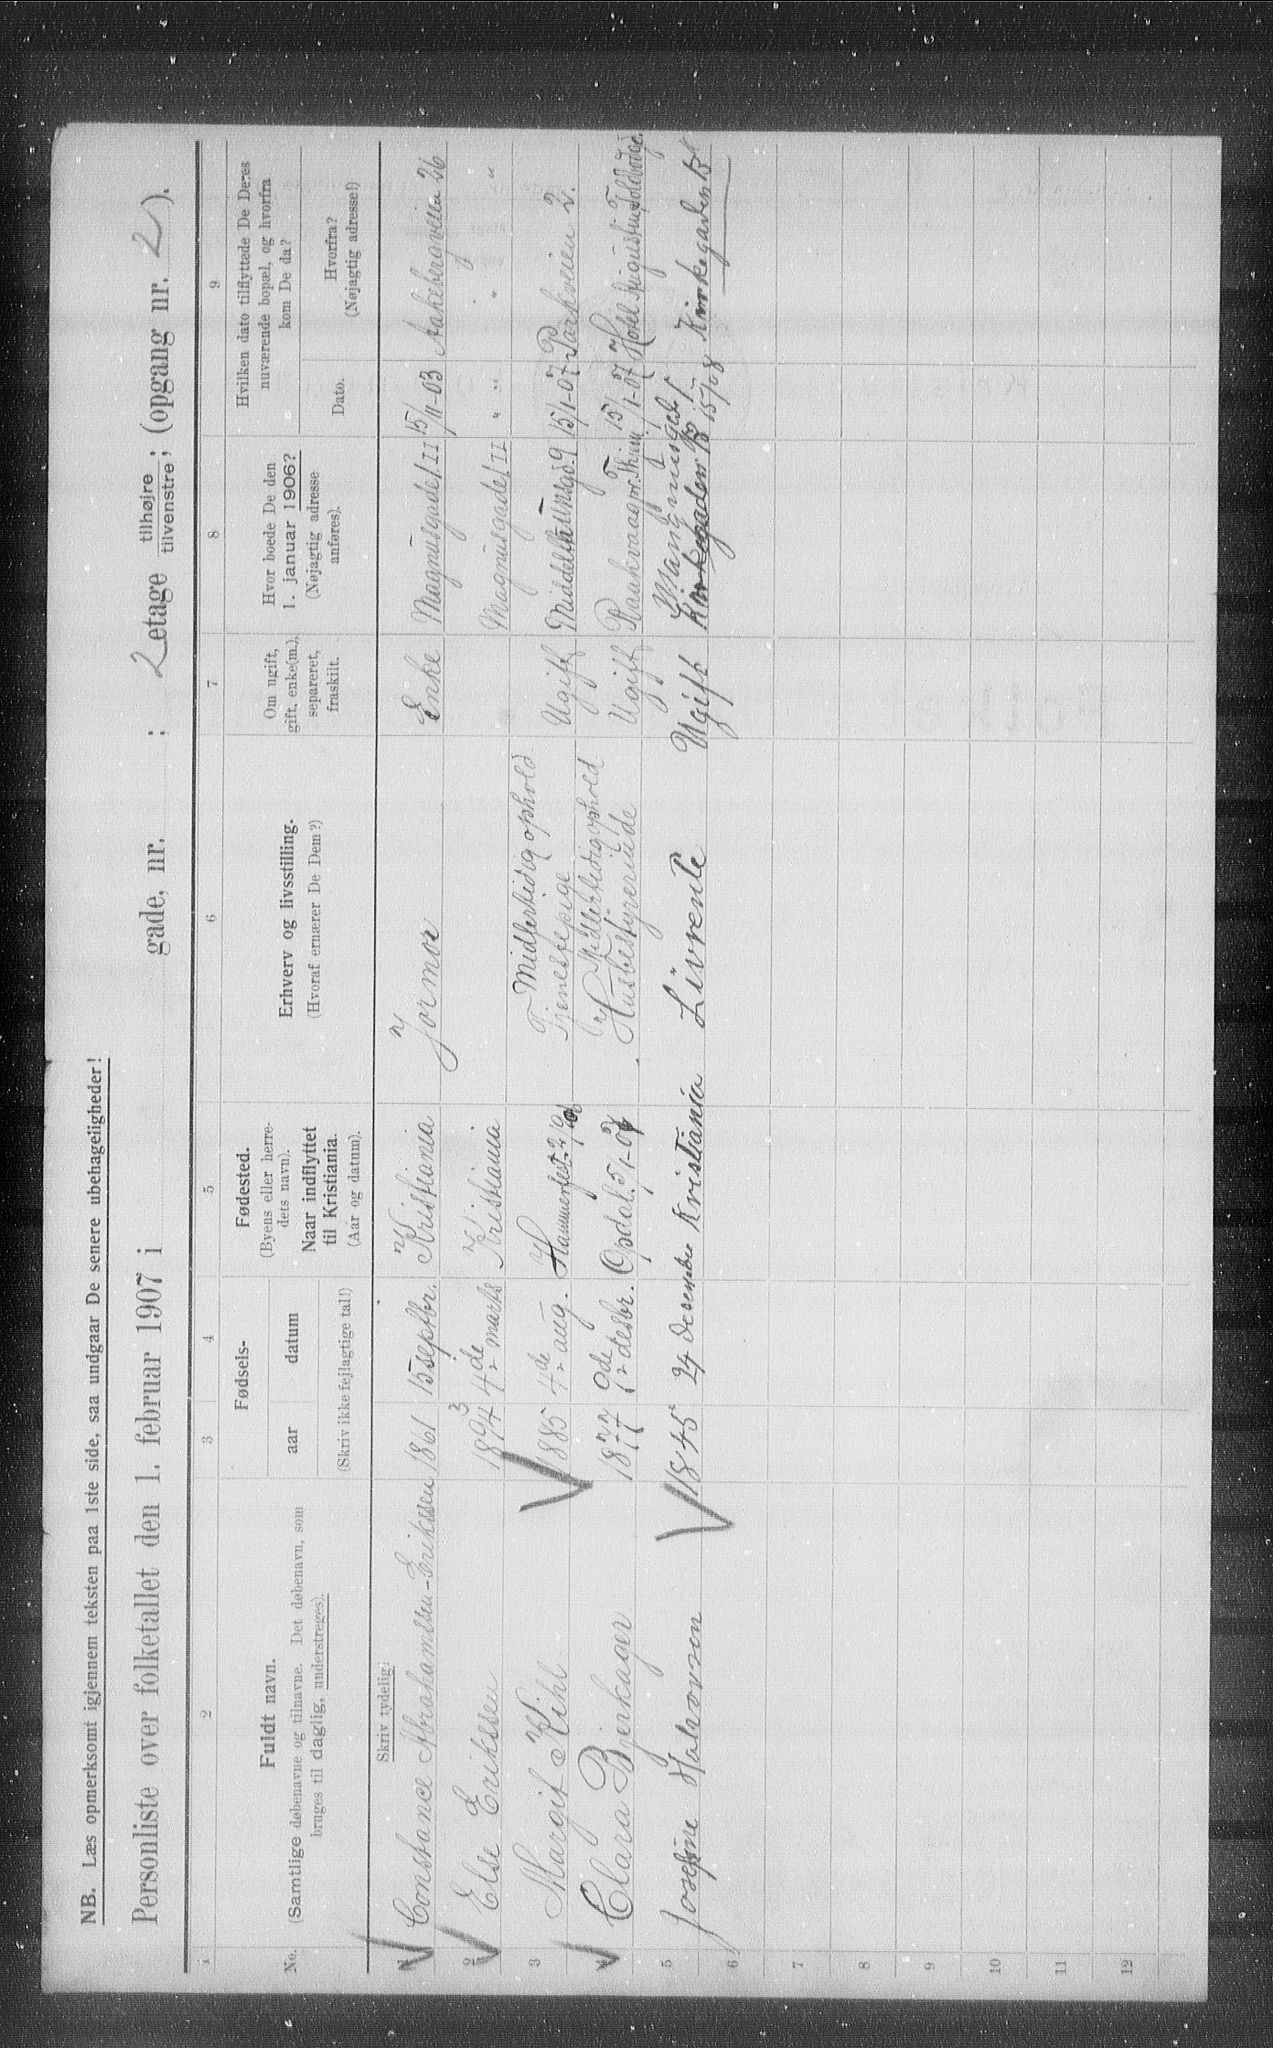 NB. Læs opmerksomt igjennem teksten paa 1ste side, saa undgaar De senere ubehageligheder!
Personliste over folketallet den 1. februar 1907 i gade, nr. ; 2 etage tilhøjre tilvenstre; (opgang nr. 2).
1 2 3 4 5 6 7 8 9
No.
Fuldt navn.
(Samtlige døbenavne og tilnavne. Det døbenavn, som
bruges til daglig, understreges).
Fødsels-
aar datum
(Skriv ikke fejlagtige tal!)
Fødested.
(Byens eller herre-
dets navn).
Naar indflyttet
til Kristiania.
(Aar og datum).
Erhverv og livsstilling.
(Hvoraf ernærer De Dem?)
Om ugift,
gift, enke(m.),
separeret,
fraskilt.
Hvor boede De den
1. januar 1906?
(Nøjagtig adresse
anføres).
Hvilken dato tilflyttede De Deres
nuværende bopæl, og hvorfra
kom De da?
Dato.
Hvorfra?
(Nøjagtig adresse!)
Skriv tydelig!
1 Constance Abrahamsen-Eriksen 1861 15 septbr. Kristiania Jormor Enke Magnusgade 1 II 15/11-03 Aakebergveien 26
2 Else Eriksen 1894 3 4de marts Kristiania Magnusgade 1 II " " " "
3 Margit Kihl 1885 4de aug. Hammerfest Midlertidig ophold
Tjenestepige Ugift Middelthunsgd. 9 15/1-07 Parkveien 2.
4 Clara Bjerkager 1877 desbr. Opdal 5/1-07 Midlertidig ophold
Husbestyrerinde Ugift Raakvaag pr. Thjem 15/1-07 Hotel Augustin Toldbodgd.
5 Josefine Halvorsen 1845 24 december Kristiania Livrente Ugift Mangnusgd. 1
Kirkegaden 15/08 Kirkegaden
6
7
8
9
10
11
12